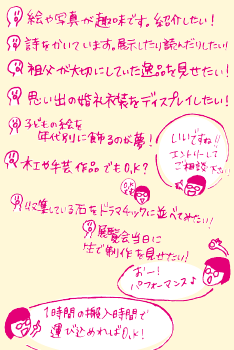 絵や写真が趣味です。紹介したい!
詩をかいています。展示したり読んだりしたい!
祖父が大切にしていた逸品を見せたい!
思い出の婚礼衣装をディスプレイしたい!
子どもの絵を
年代別に飾るのが夢!
いいですね!!
エントリーして
ご相談下さい!
木工や手芸作品でもO.K?
O.K
収集している石をドラマチックに並べてみたい!!
展覧会当日に
生で制作を見せたい!
おー!
パフォーマンス♪
1時間の搬入時間で
運び込めればO.K!